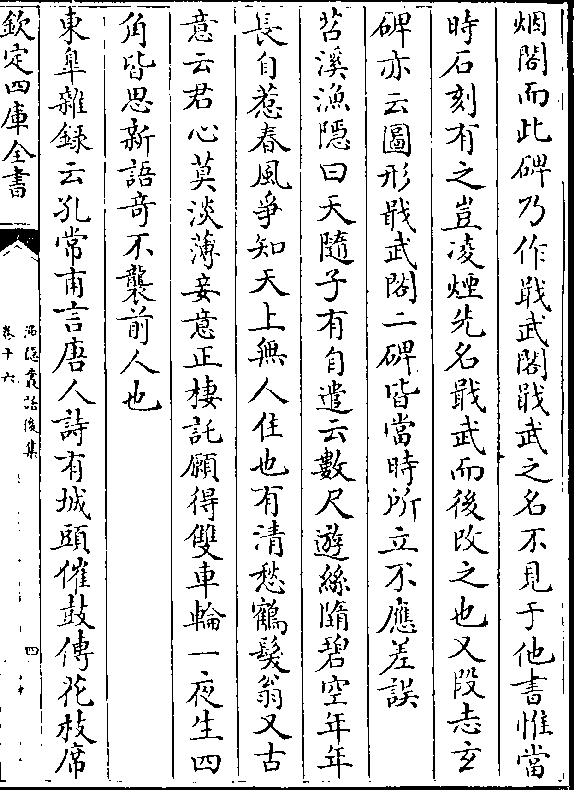 烟閣而此碑乃作戢武閣戢武之名不見于他書惟當
時石刻有之豈凌煙先名戢武而後改之也又段志玄
碑亦云圖形戢武閣二碑皆當時所立不應差誤
苕溪漁隱曰天隨子有自遣云數尺遊絲墮碧空年年
長自惹春風爭知天上無人住也有清愁鶴髮翁又古
意云君心莫淡薄妾意正棲託願得雙車輪一夜生四
角皆思新語奇不襲前人也
東臯雜録云孔常甫言唐人詩有城頭催鼓傳花枝席
欽定四庫全書
漁隱叢話後集
卷十六
四